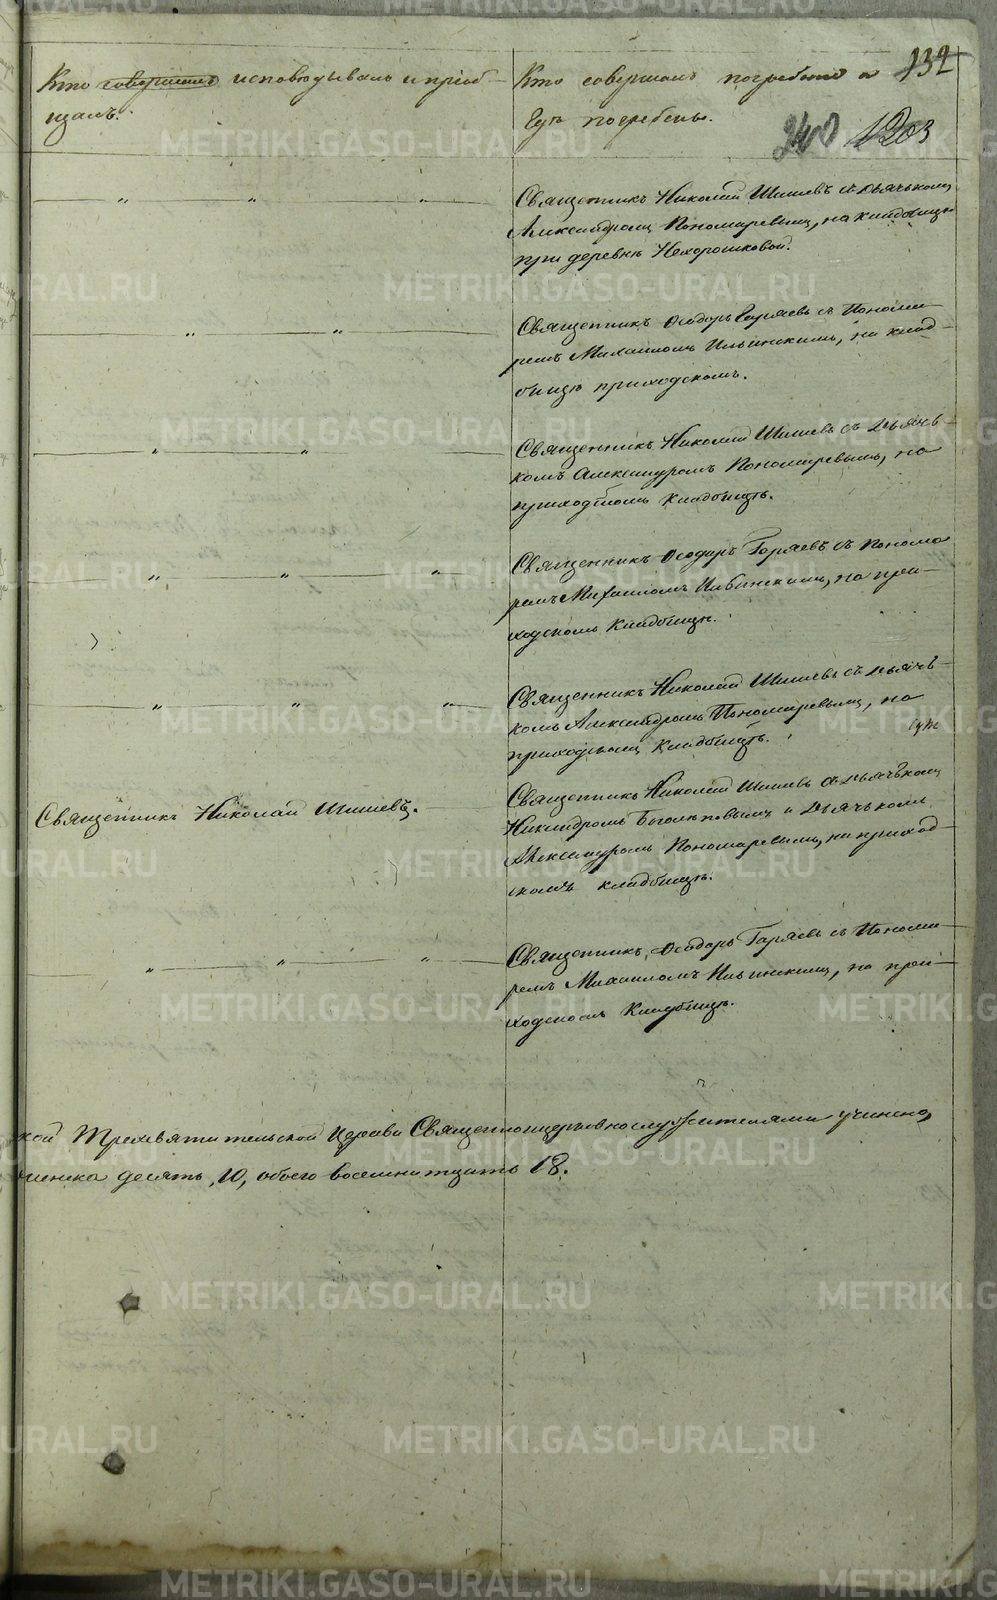 Кто совершалъ исповѣдывалъ и пріоб-
щалъ.
Кто совершалъ погребеніе и
гдѣ погребены.
132
240 1203
Священникъ Николай Шишевъ съ дьячькомъ
Александромъ Пономаревымъ, на кладбищѣ
при деревнѣ Нехорошковой.
Священникъ Ѳеодоръ Горяевъ съ Понома-
ремъ Михаиломъ Ильинскимъ, на клад-
бищѣ приходскомъ.
Священникъ Николай Шишевъ съ дьячь-
комъ Александромъ Пономаревымъ, на
приходскомъ кладбищѣ.
Священникъ Ѳеодоръ Горяевъ съ Понома
ремъ Михаиломъ Ильинскимъ, на при-
ходскомъ кладбищѣ.
Священникъ Николай Шишевъ съ дьячь-
комъ Александромъ Пономаревымъ, на
приходскомъ кладбищѣ.
Священникъ Николай Шишевъ.
Священникъ Николай Шишевъ съ дьячькомъ
Никандромъ Боголѣповымъ и дьячькомъ
Александромъ Пономаревымъ, на приход-
скомъ кладбищѣ.
Священникъ Ѳеодоръ Горяевъ съ Понома-
ремъ Михаиломъ Ильинскимъ, на при-
ходскомъ кладбищѣ.
кой Трехсвятительской Церкви Священноцерковнослужителями учинено,
женска десять, 10, обоего восемнатцать 18.
METRIKI.GASO-URAL.RU